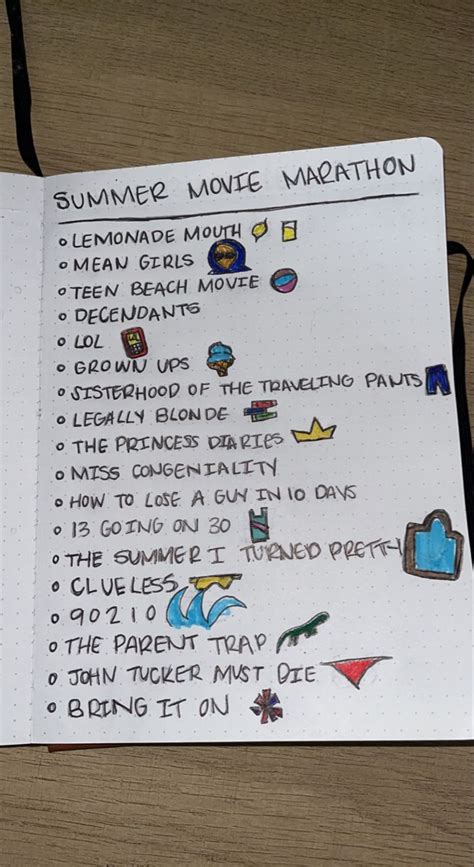 SUMMER MOVIE MARATHON
LEMONADE MOUTH
MEAN GIRLS
TEEN BEACH MOVIE
DECENDANTS
LOL
GROWN UPS
SISTERHOOD OF THE TRAVELING PANTS
LEGALLY BLONDE
THE PRINCESS DIARIES
MISS CONGENIALITY
HOW TO LOSE A GUY IN 10 DAYS
13 GOING ON 30
THE SUMMER I TURNED PRETTY
CLUELESS
90210
THE PARENT TRAP
JOHN TUCKER MUST DIE
BRING IT ON